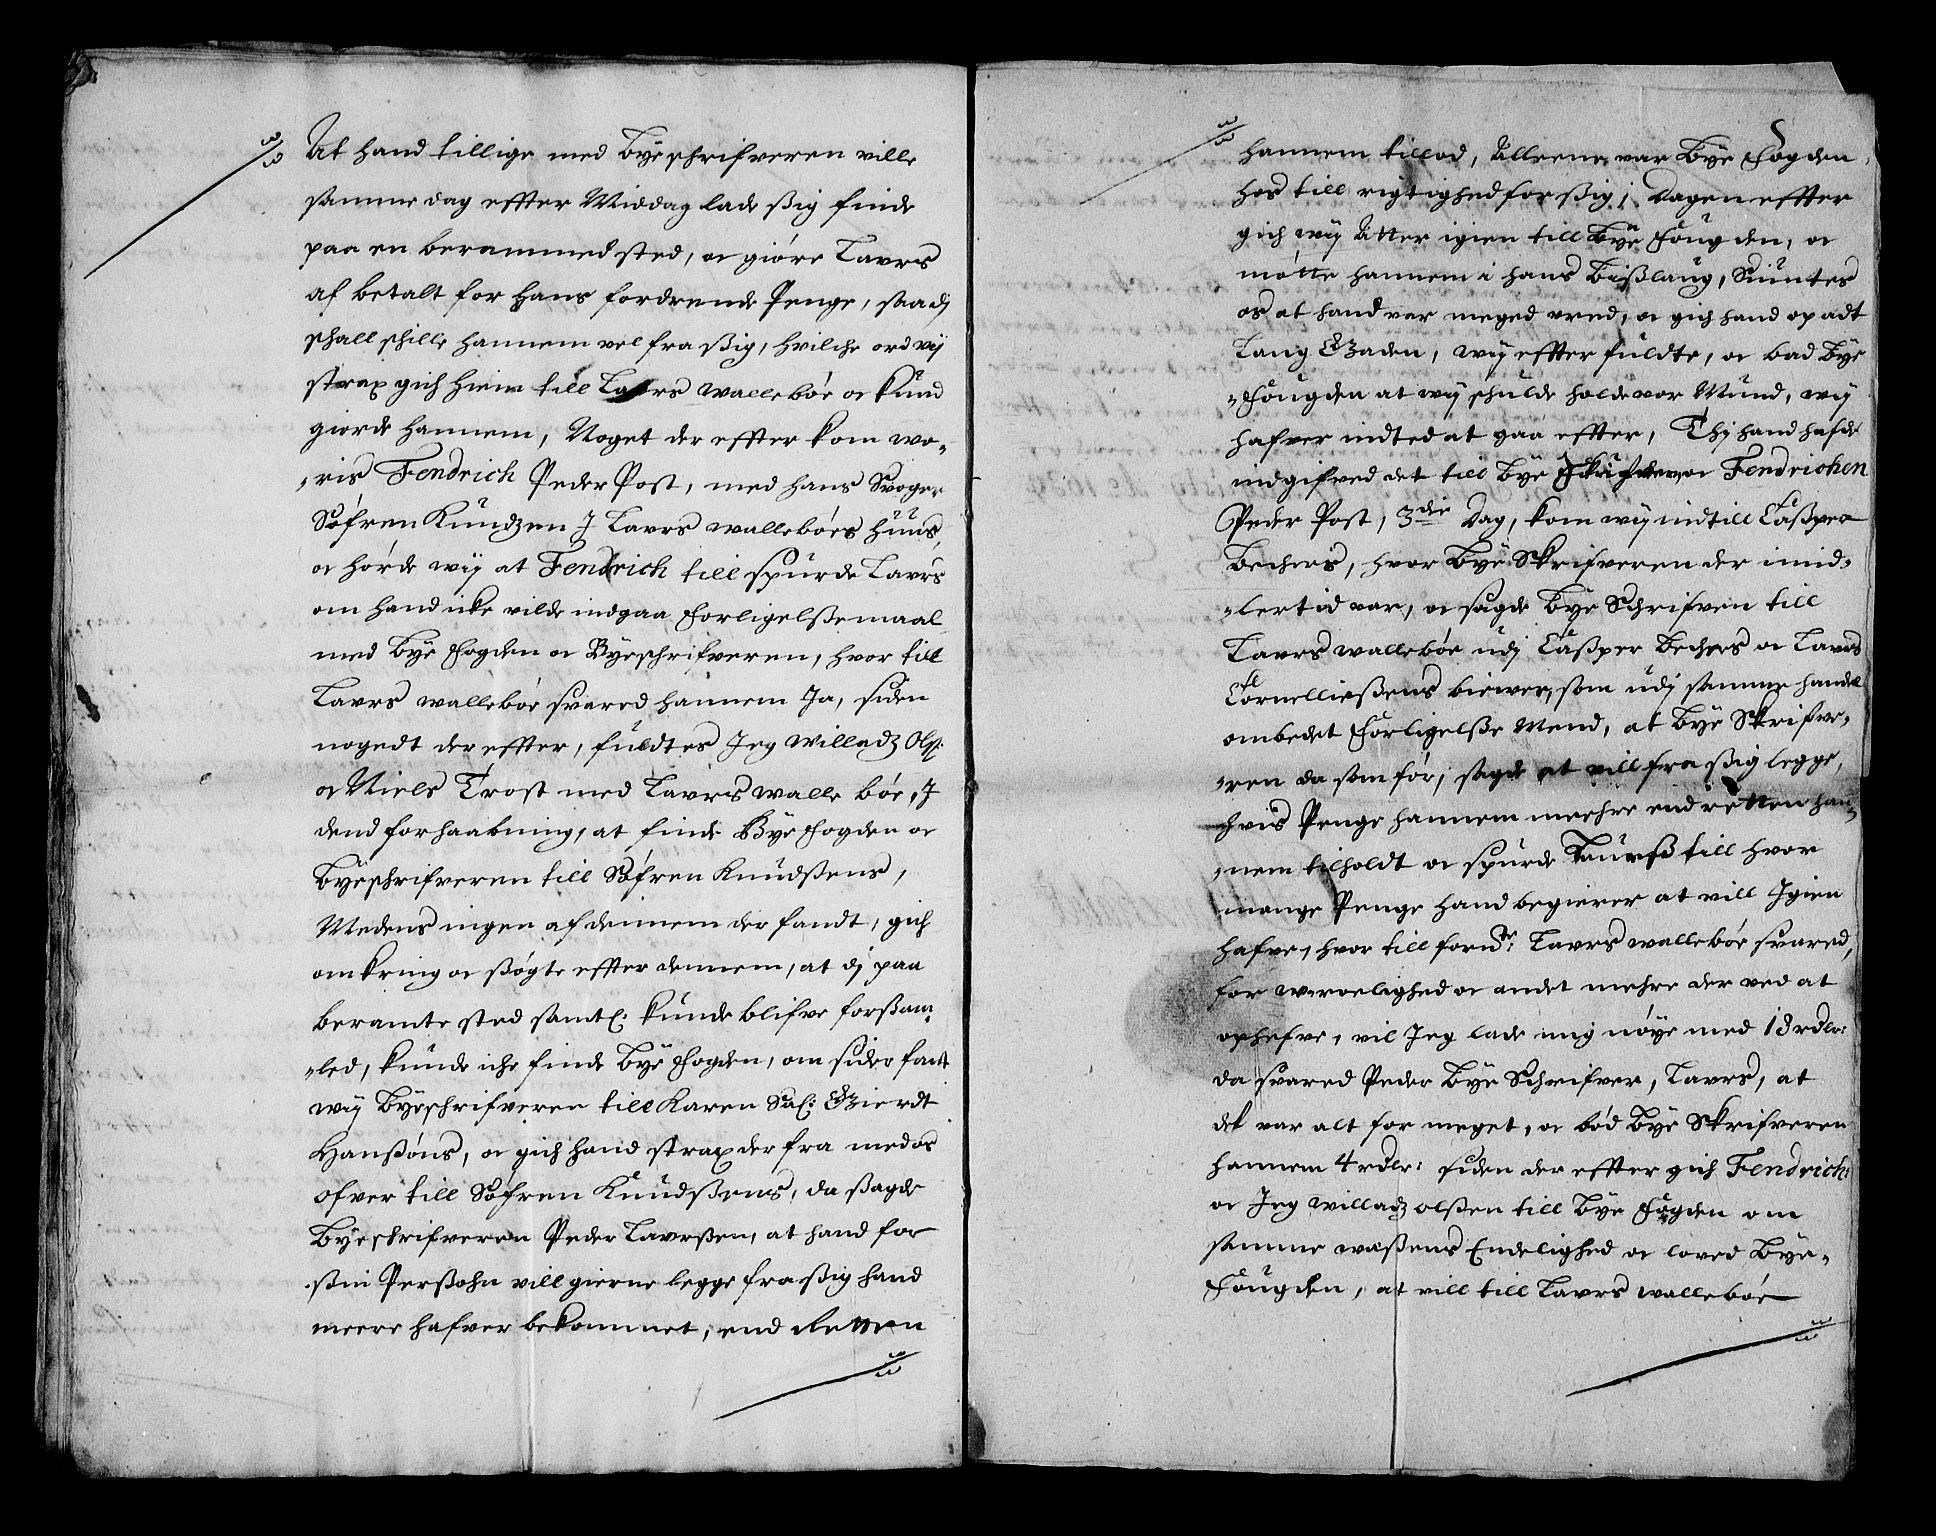 At hand tillige med Byeschrifveren ville
samme dag effter Middag lade ßig finde
paa en berammed sted, oc giøre Lavrs
af betalt for hans fordrende Penge, saa dj
schall schille hannem vel fra ßig, hvilche ord vij
strax gich hiem till Lavrs wallebøe oc kund
giorde hannem, Noget der effter kom wo„
„ris Fendrich Peder Post, med hans Svoger
Søfren Kundzen J Lavrs wallebøes Huus,
oc hørde wij at Fendrich till spurde Lavrs
om hand icke vilde indgaa Forligelßemaal
med Bye Fogden oc Byeschrifveren, hvor till
Lavrs wallebøe svared hannem Ja, siden
nogedt der effter, fuldtes Jeg Willadz Olß:
oc Niels Trost med Lavrs walle bøe, J
dend forhaabning, at finde Bye Fogden oc
Byeschrifveren till Søfren Knudßens,
Medens ingen af dennem der fandt, gich
omkring oc ßøgte effter dennem, at dj paa
beramte sted samtl: kunde blifve forßam„
„led, kunde iche finde Bye Fogden, om sider fant
wij Byeschrifveren till Karen Sal: Gierdt
Hanßøns, oc gich hand strax der fra med os
ofver till Søfren Knudßens, da ßagde
Byeschrifveren Peder Lavrßen, at hand for
ßin Perßohn vill gierne legge fra ßig hand
meere hafver bekommet, end Retten
hannem tillod, Alleene var Bye Fogden
hos till rigtighed for ßig; Dagen effter
gich wij Atter igien till Bye Fougden, oc
møtte hannem i hans Bißlaug, Siuntes
os at hand var meged vred, oc gich hand op adt
Lang Gaden, wij effter fuldte, oc bad Bye
„Fougden at wij schulde holde vor Mund, wij
hafver indted at gaa effter, Thj hand hafde
indgifved det till Bye Skrifveren oc Fendrichen
Peder Post, 3die Dag, kom wij ind till Caßper
Bechers, hvor Bye Skrifveren der imid„
„lertid var, oc sagde Bye Schrifven till
Lavrs wallebøe udj Caßper Bechers oc Lavrs
Cornelließens biewer, som udj samme handel
ombedet Forligelße Mend, at Bye Skrifve„
„ren da som før, sagde at vill fra ßig legge,
hvis Penge hannem meehre end retten han„
„nem tilholdt oc spurde Laurß till hvor
mange Penge hand begierer at vill Jgien
hafve, hvor till fornde: Lavrs wallebøe svared,
for wroelighed oc andet mehre der ved at
ophefve, vil Jeg lade mig nøye med 18 rdlr:
da svared Peder Bye Schrifver, Lavrs, at
det var alt for meget, oc bød Bye Skrifveren
hannem 4 rdlr: siden der effter gich Fendrich:
oc Jeg willadz olßen till Bye Fogden om
samme waßens Endelighed oc loved Bye„
Fougden, at vill till Lavrs wallebøe